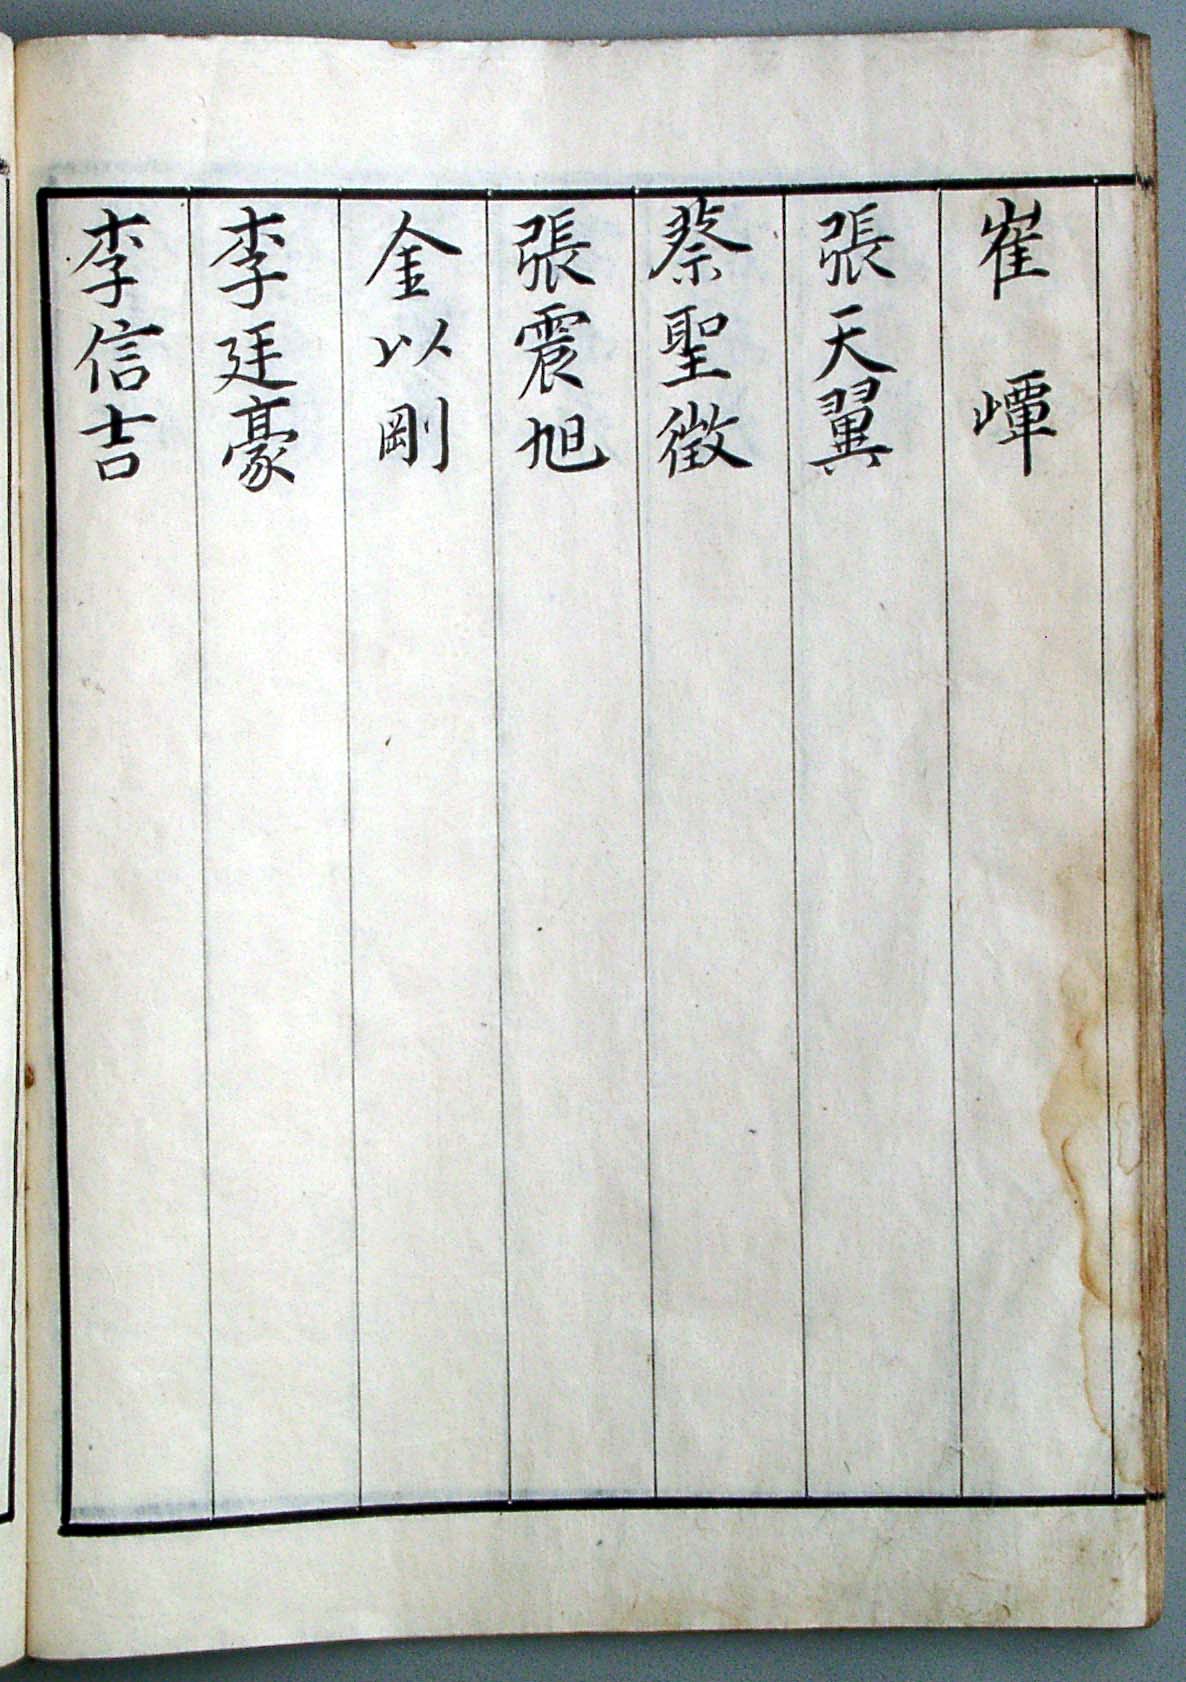 崔
張天翼
蔡聖徵
張震旭
金以剛
李廷豪
李信吉